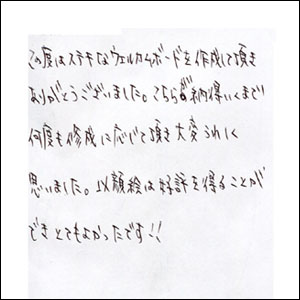 この度はステキなウェルカムボードを作成して頂き
ありがとうございました。こちらが納得いくまで
何度も修成に応じて頂き大変うれしく
思いました。似顔絵は好評を得ることが
でき とてもよかったです!!